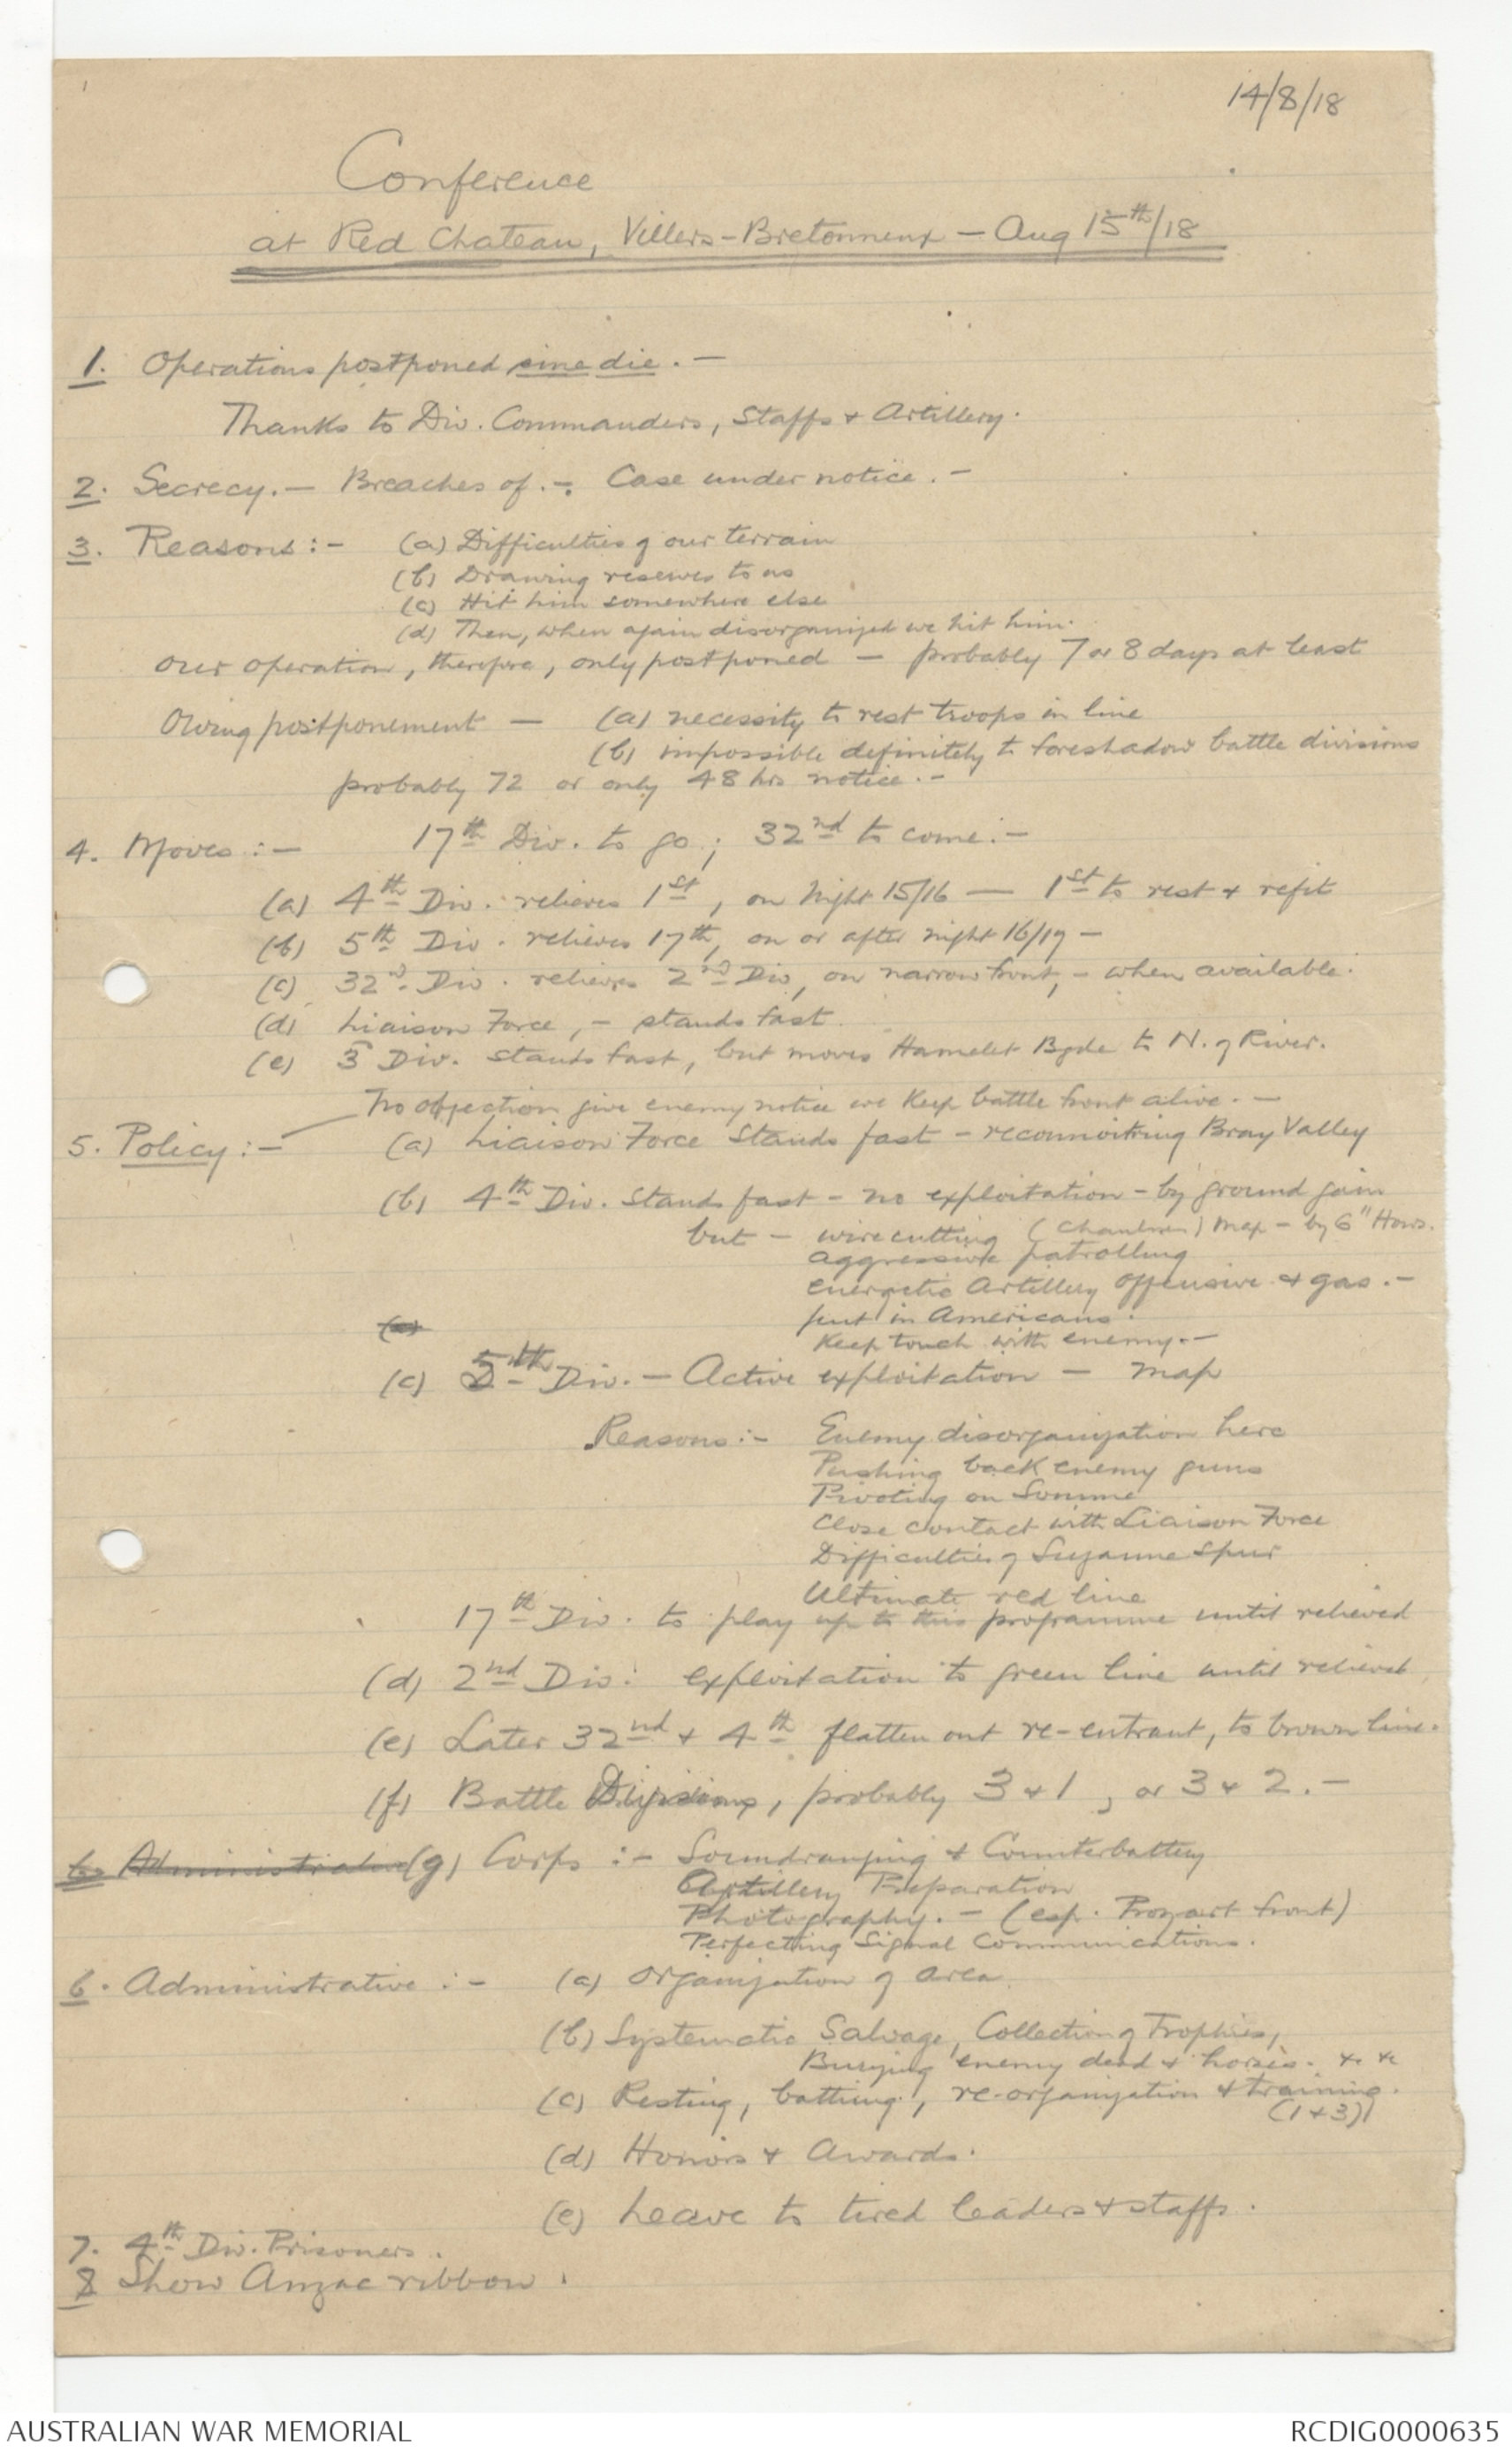 14/8/18
Conference
at Red Chateau, Villers-Bretonneux - Aug 15th/18
1. Operations postponed sine die. -
Thanks to Div. Commanders, Staffs & Artillery.
2. Secrecy. - Breaches of. - Case under notice. -
3. Reasons:- (a) Difficulties of our terrain
(b) Drawing reserves to us
(c) Hit him somewhere else
(d) Then, when again disorganized we hit him.
Our operation, therefore, only postponed - probably 7 or 8 days at least
Owing postponement - (a) necessity to rest troops in line
(b) impossible definitely to foreshadow battle divisions
probably 72 or only 48 hrs notice. -
4. Moves:- 17th Div. to go; 32nd to come. -
(a) 4th Div. relieves 1st, on Night 15/16 - 1st to rest & refit
(b) 5th Div. relieves 17th, on or after night 16/17 -
(c) 32nd Div. relieves 2nd Div, on narrow front, - when available.
(d) Liaison Force, - stands fast.
(e) 3 Div. stands fast, but moves Hamelet Bgde to N. of River.
No objection give enemy notice we keep battle front alive. -
5. Policy:- (a) Liaison Force stands fast - reconnoitring Bray Valley
(b) 4th Div. stands fast - no exploitation - by ground gain
but - wirecutting ( ) map - by 6" Hows.
aggressive patrolling
energetic Artillery offensive & gas. -
put in Americans.
Keep touch with enemy. -
(c)
(c) 5th Div. - Active exploitation - map
Reasons:- Enemy disorganization here
Pushing back enemy guns
Pivoting on Somme
Close contact with Liaison Force
Difficulties of Suzanne Spur
Ultimate red line
17th Div. to play up to this programme until relieved
(d) 2nd Div: exploitation to green line until relieved
(e) Later 32nd & 4th flatten out re-entrant, to brown line.
(f) Battle Divisions, probably 3 & 1, or 3 & 2. -
6. Administrative (g) Corps:- Soundranging & Counterbattery
Artillery Preparation
Photography. - (esp. Proyart front)
Perfecting Signal Communications.
6. Administrative:- (a) Organization of area.
(b) Systematic Salvage, Collection of Trophies,
Burying enemy dead & horses. &c &c
(c) Resting, bathing, re-organization & training.
(1 + 3)
(d) Honors & Awards.
(e) Leave to tired leaders & staffs.
7. 4th Div. Prisoners.
8 Show Anzac ribbon.
AUSTRALIAN WAR MEMORIAL
RCDIG0000635